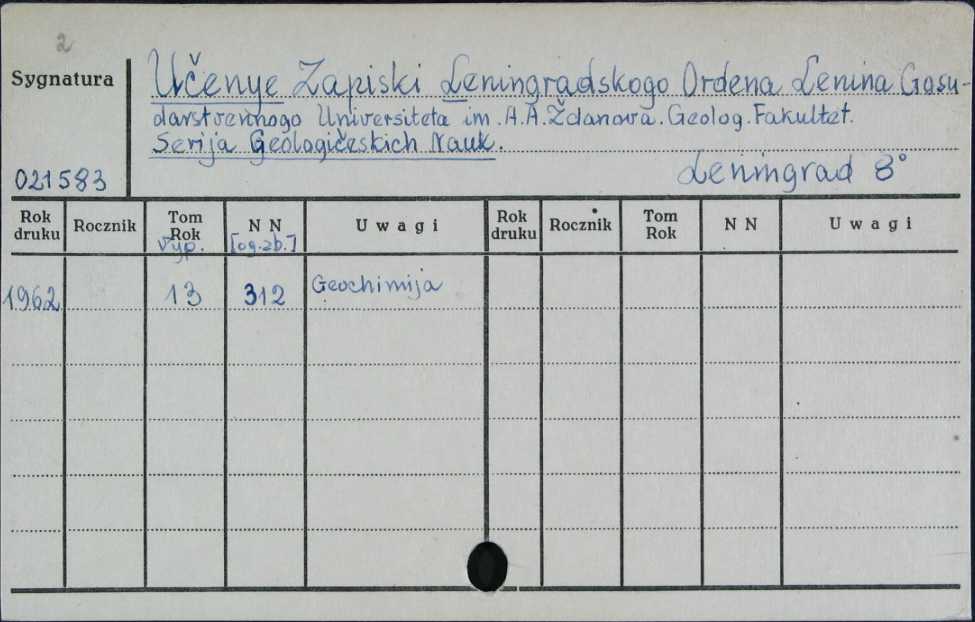 2
Sygnatura
Učenye Zapiski Leningradskogo Ordena Lenina Gosu-
darstvennogo Universiteta im. A.A. Ždanova. Geolog. Fakultet.
Serija Geologičeskich Nauk.
021583
Leningrad 8°
Rok druku Rocznik Tom Rok N N Uwagi Rok druku Rocznik Tom Rok N N Uwagi
Vyp. [og.zb.]
1962 13 312 Geochimija